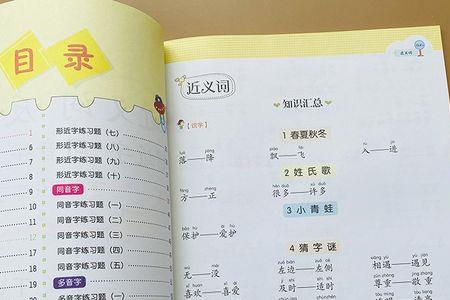 目录
1 形近字练习题（七）
6 形近字练习题（八）
7 形近字练习题（九）
8 形近字练习题（十）
9 同音字
10 同音字练习题（一）
11 同音字练习题（二）
12 同音字练习题（三）
13 同音字练习题（四）
14 同音字练习题（五）
18 多音字
19 多音字练习题（一）
近义词
近义词
知识汇总
【识字】
1 春夏秋冬
落——降 飘——飞 入——进
2 姓氏歌
方——正 很多——许多
3 小青蛙
保护——爱护
4 猜字谜
无——没 左边——左侧 相遇——遇见
喜欢——喜爱 及时——适时 尊重——敬重